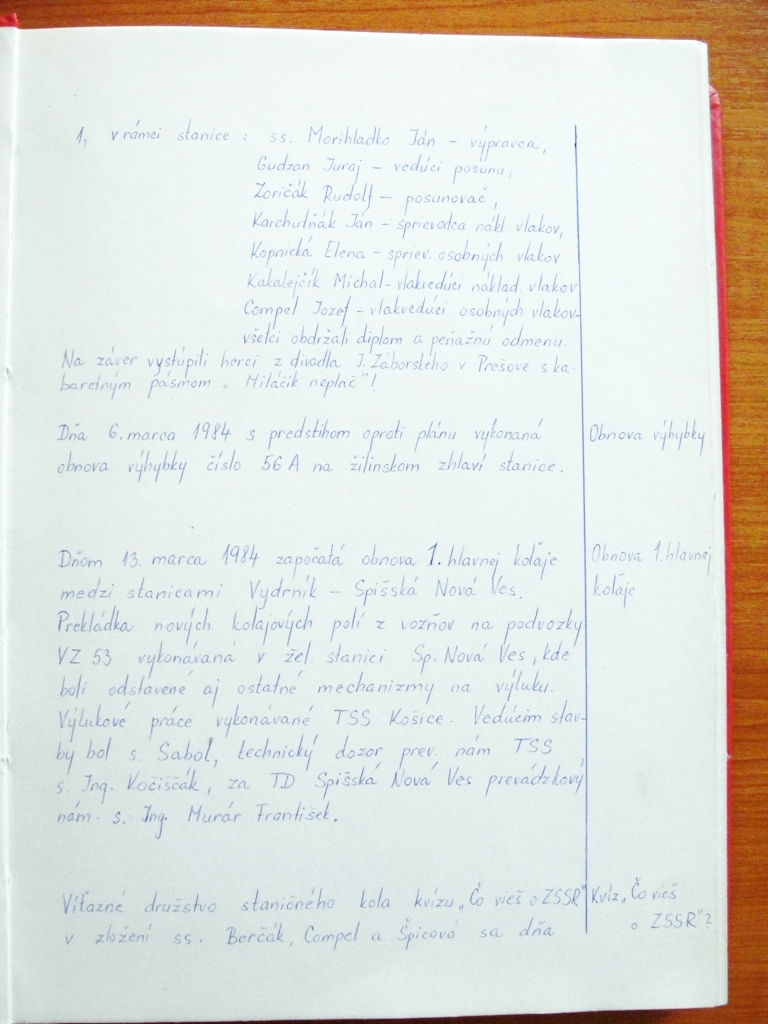 1, v rámci stanice : ss. Morihladko Ján – výpravca,
Gudzan Juraj – vedúci posunu,
Zoričák Rudolf – posunovač,
Karchutňák Ján – sprievodca nákl vlakov,
Kopnická Elena – spriev. osobných vlakov
Kakalejčík Michal - vlakvedúci náklad. vlakov
Compel Jozef – vlakvedúci osobných vlakov-
všetci obdržali diplom a peňažnú odmenu.
Na záver vystúpili herci z divadla J. Záborského v Prešove s ka-
baretným pásmom „ Miláčik neplač "!
Dňa 6. marca 1984 s predstihom oproti plánu vykonaná
obnova výhybky číslo 56 A na žilinskom zhlaví stanice.
Obnova výhybky
Dňom 13. marca 1984 započatá obnova 1. hlavnej koľaje
medzi stanicami Vydrník – Spišská Nová Ves.
Prekládka nových koľajových polí z vozňov na podvozky
VZ 53 vykonávaná v žel. stanici Sp. Nová Ves , kde
boli odstavené aj ostatné mechanizmy na výluku.
Výlukové práce vykonávané TSS Košice. Vedúcim stav-
by bol s. Sabol, technický dozor prev. nám TSS
s. Ing. Kočiščák , za TD Spišská Nová Ves prevádzkový
nám. s. Ing. Murár František.
Obnova 1. hlavnej
koľaje
Víťazné družstvo staničného kola kvízu „ Čo vieš o ZSSR"
v zložení ss. Berčák, Compel a Špicová sa dňa
Kvíz „ Čo vieš
o ZSSR"?